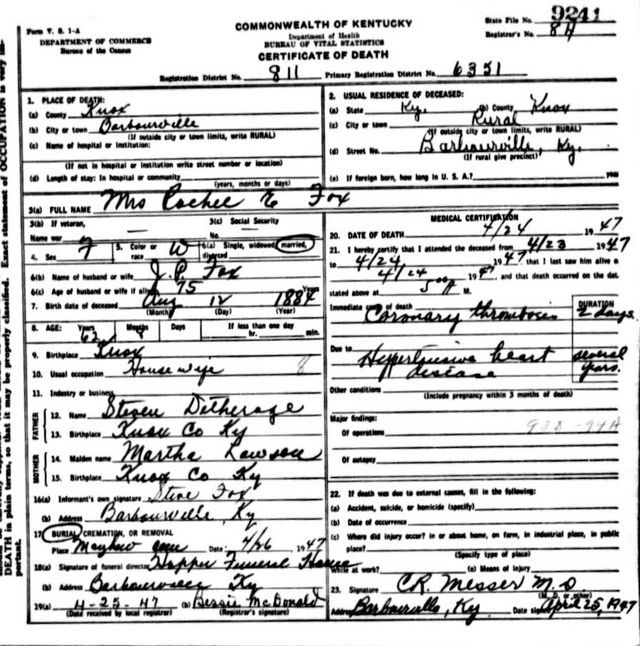 Form V. S. 1-A
DEPARTMENT OF COMMERCE
Bureau of the Census
COMMONWEALTH OF KENTUCKY
Department of Health
BUREAU OF VITAL STATISTICS
CERTIFICATE OF DEATH
State File No. 9241
Registrar's No. 84
Registration District No. 811 Primary Registration District No. 6351
1. PLACE OF DEATH:
(a) County Knox
(b) City or town Barbourville
(If outside city or town limits, write RURAL)
(c) Name of hospital or institution:
(If not in hospital or institution write street number or location)
(d) Length of stay: In hospital or community
(years, months or days)
2. USUAL RESIDENCE OF DECEASED:
(a) State Ky. (b) County Knox
(c) City or town Rural
(If outside city or town limits, write RURAL)
(d) Street No. Barbourville, Ky.
(If rural give precinct)
(e) If foreign born, how long in U. S. A.? years
3(a) FULL NAME Mrs E Fox
3(b) If veteran,
Name war
3(c) Social Security
No.
4. Sex F 5. Color or race W 6(a) Single, widowed, married, divorced
6(b) Name of husband or wife J. P. Fox
6(c) Age of husband or wife if alive 75
7. Birth date of deceased Aug 12 1884
(Month) (Day) (Year)
8. AGE: Years Months Days If less than one day
62 8 hr. min.
9. Birthplace Knox
10. Usual occupation House wife 8
11. Industry or business
FATHER
12. Name Steven Detherage
13. Birthplace Knox Co Ky
MOTHER
14. Maiden name Martha Lawson
15. Birthplace Knox Co Ky
16(a) Informant's own signature Steve Fox
(b) Address Barbourville, Ky
17. BURIAL, CREMATION, OR REMOVAL
Place Date: 4/26 1947
18(a) Signature of funeral director Hopper Funeral Home
(b) Address Barbourville Ky
19(a) 4-25-47 (b) Bessie McDonald
(Date received by local registrar) (Registrar's signature)
MEDICAL CERTIFICATION
20. DATE OF DEATH 4/24 1947
21. I hereby certify that I attended the deceased from 4/23 1947
to 4/24 1947 that I last saw him alive on
4/24 1947, and that death occurred on the date
stated above at M.
Immediate cause of death
Coronary thrombosis
DURATION
2 days
Due to Hypertensive heart
disease
several
years.
Other conditions
(Include pregnancy within 3 months of death)
Major findings:
Of operations
Of autopsy
22. If death was due to external causes, fill in the following:
(a) Accident, suicide, or homicide (specify)
(b) Date of occurrence
(c) Where did injury occur? in or about home, on farm, in industrial place, in public
place?
(Specify type of place)
While at work? (e) Means of injury
23. Signature C.R. Messer M.D
(M. D. or other)
Address Barbourville, Ky Date signed April 25, 1947
DEATH in plain terms, so that it may be properly classified. Exact statement of OCCUPATION is very im-
portant.